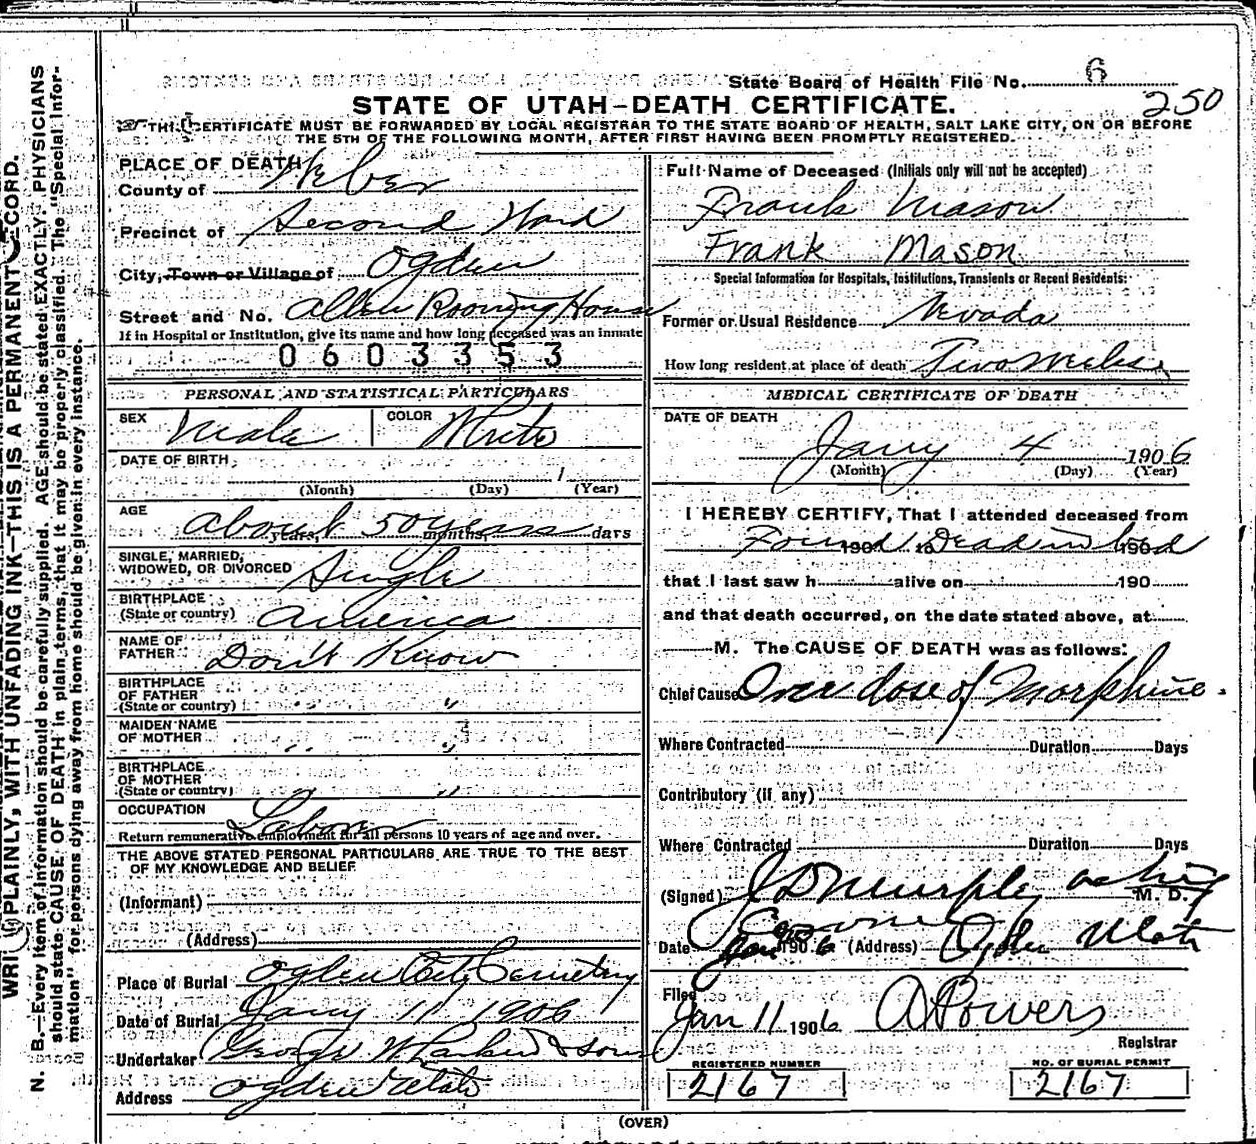 State Board of Health File No. 6
250
STATE OF UTAH–DEATH CERTIFICATE.
THIS CERTIFICATE MUST BE FORWARDED BY LOCAL REGISTRAR TO THE STATE BOARD OF HEALTH, SALT LAKE CITY, ON OR BEFORE
THE 5TH OF THE FOLLOWING MONTH, AFTER FIRST HAVING BEEN PROMPTLY REGISTERED.
PLACE OF DEATH
County of Weber
Precinct of Second Ward
City, Town or Village of Ogden
Street and No. Allen Rooming House
If in Hospital or Institution, give its name and how long deceased was an inmate
0603353
PERSONAL AND STATISTICAL PARTICULARS
SEX Male COLOR White
DATE OF BIRTH
(Month) (Day) (Year)
AGE about 50 years
years, months, days
SINGLE, MARRIED,
WIDOWED, OR DIVORCED Single
BIRTHPLACE
(State or country) America
NAME OF
FATHER Don't Know
BIRTHPLACE
OF FATHER
(State or country) " "
MAIDEN NAME
OF MOTHER " "
BIRTHPLACE
OF MOTHER
(State or country) "
OCCUPATION Laborer
Return remunerative employment for all persons 10 years of age and over.
THE ABOVE STATED PERSONAL PARTICULARS ARE TRUE TO THE BEST
OF MY KNOWLEDGE AND BELIEF
(Informant)
(Address)
Place of Burial Ogden City Cemetery
Date of Burial Jany 11 1906
Undertaker George W Larkin & Sons
Address Ogden Utah
Full Name of Deceased (Initials only will not be accepted)
Frank Mason
Frank Mason
Special Information for Hospitals, Institutions, Transients or Recent Residents:
Former or Usual Residence Nevada
How long resident at place of death Two weeks
MEDICAL CERTIFICATE OF DEATH
DATE OF DEATH
Jany 4 1906
(Month) (Day) (Year)
I HEREBY CERTIFY, That I attended deceased from
Found Dead in bed
190 to 190
that I last saw h alive on 190
and that death occurred, on the date stated above, at
M. The CAUSE OF DEATH was as follows:
Chief Cause Over dose of Morphine.
Where Contracted Duration Days
Contributory (if any)
Where Contracted Duration Days
(Signed) J D Murphy acting M. D.
Coroner
Date Jan 1906 (Address) Ogden Utah
Filed
Jan 11 1906 A Powers
Registrar
REGISTERED NUMBER
2167
NO. OF BURIAL PERMIT
2167
(OVER)
WRITE PLAINLY, WITH UNFADING INK—THIS IS A PERMANENT RECORD.
N. B.—Every item of information should be carefully supplied. AGE should be stated EXACTLY. PHYSICIANS
should state CAUSE OF DEATH in plain terms, that it may be properly classified. The "Special Infor-
mation" for persons dying away from home should be given in every instance.